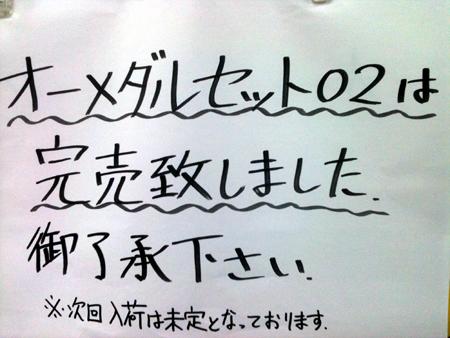 オーメダルセット02は
完売致しました.
御了承下さい.
※次回入荷は未定となっております.